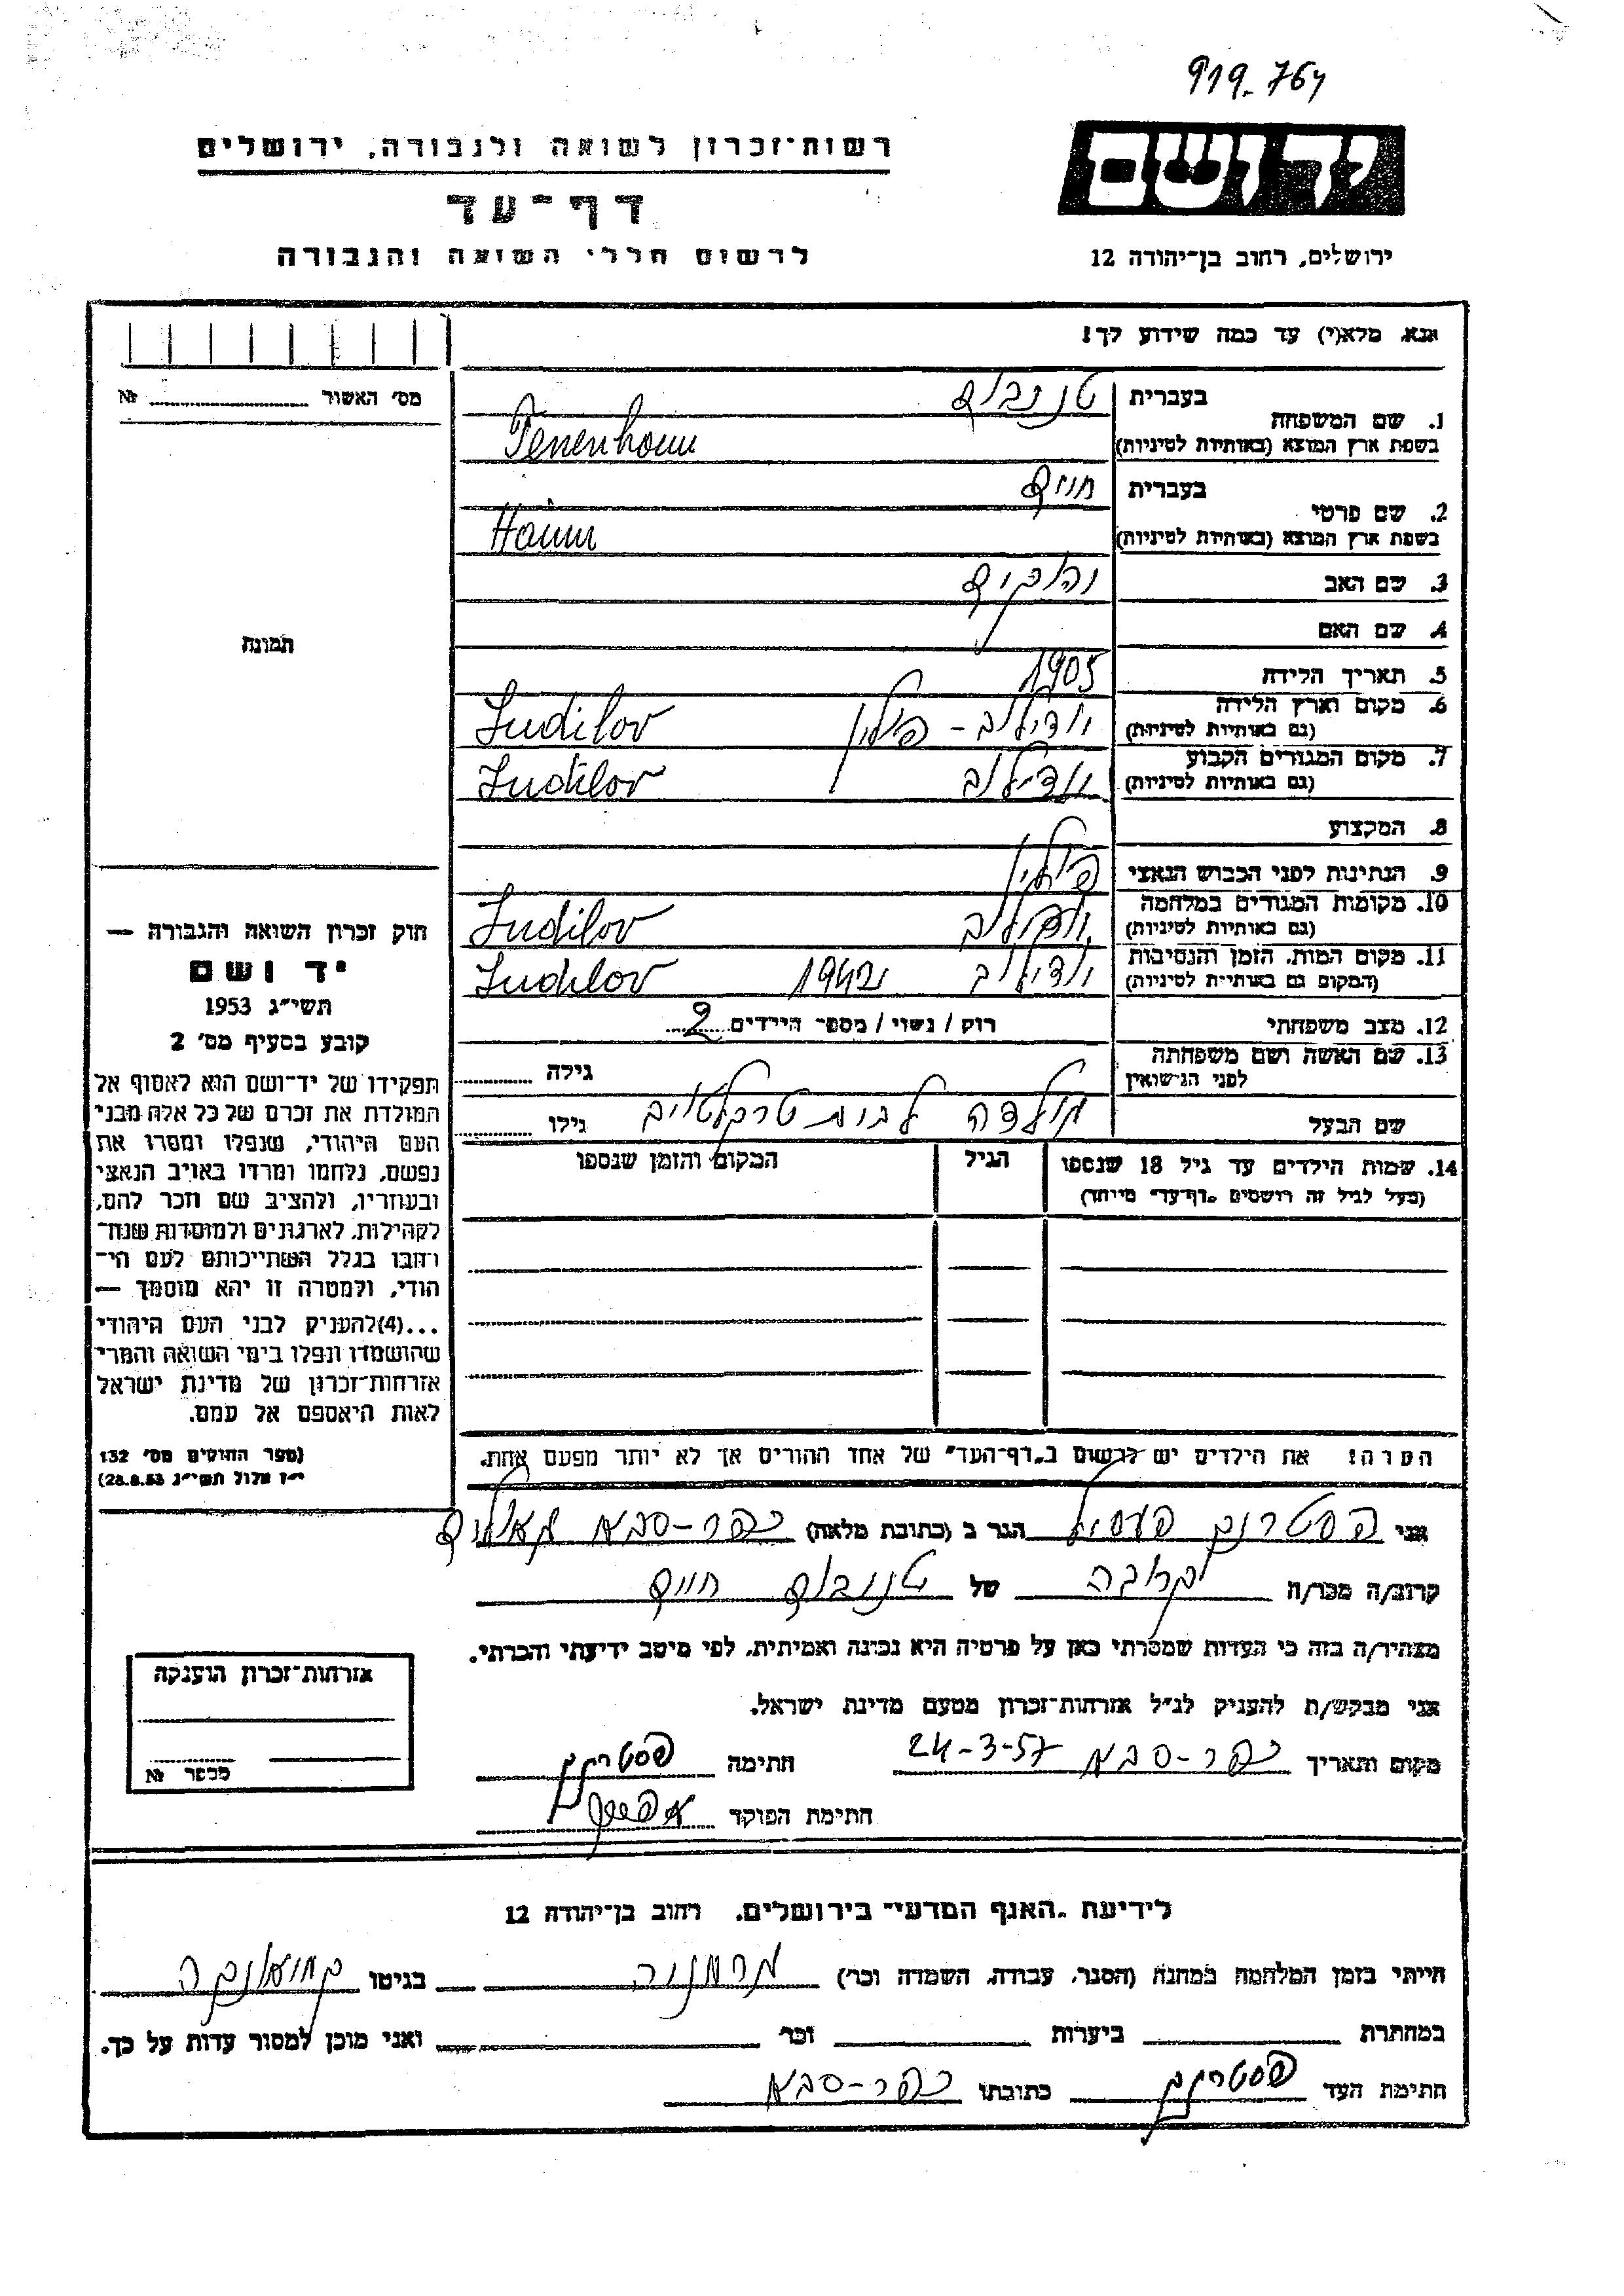 919-764
רשות־זכרון לשואה ולגבורה, ירושלים
יד ושם
דף־עד
לרשום חללי השואה והגבורה
ירושלים, רחוב בן־יהודה 12
אנא, מלא(י) עד כמה שידוע לך!
מס׳ האשור № 
1. שם המשפחה בעברית טננבוים
בשפת ארץ המוצא (באותיות לטיניות) Tenenbaum
2. שם פרטי בעברית חיים
בשפת ארץ המוצא (באותיות לטיניות) Haim
3. שם האב
4. שם האם
תמונה
5. תאריך הלידה 1905
6. מקום וארץ הלידה - פולין Sudilov
(גם באותיות לטיניות)
7. מקום המגורים הקבוע Sudilov
(גם באותיות לטיניות)
8. המקצוע
9. הנתינות לפני הכבוש הנאצי פולין
10. מקומות המגורים במלחמה Sudilov
(גם באותיות לטיניות)
11. מקום המות, הזמן והנסיבות 1942 Sudilov
(המקום גם באותיות לטיניות)
12. מצב משפחתי רוק / נשוי / מספר הילדים 2
13. שם האשה ושם משפחתה גילה
לפני הנישואין
שם הבעל לבית גילו
14. שמות הילדים עד גיל 18 שנספו הגיל המקום והזמן שנספו
(מעל לגיל זה רושמים „דף־עד״ מיוחד)
חוק זכרון השואה והגבורה —
יד ושם
תשי״ג 1953
קובע בסעיף מס׳ 2
תפקידו של יד־ושם הוא לאסוף אל
המולדת את זכרם של כל אלה מבני
העם היהודי, שנפלו ומסרו את
נפשם, נלחמו ומרדו באויב הנאצי
ובעוזריו, ולהציב שם וזכר להם,
לקהילות, לארגונים ולמוסדות שנח־
רבו בגלל השתייכותם לעם הי־
הודי, ולמטרה זו יהא מוסמך —
...(4)להעניק לבני העם היהודי
שהושמדו ונפלו בימי השואה והמרי
אזרחות־זכרון של מדינת ישראל
לאות היאספם אל עמם.
(ספר החוקים מס׳ 132
י״ז אלול תשי״ג 28.8.53)
הערה: את הילדים יש לרשום ב„דף־העד״ של אחד ההורים אך לא יותר מפעם אחת.
אני הגר ב (כתובת מלאה) כפר-סבא
קרוב/ה מכר/ה של טננבוים חיים
מצהיר/ה בזה כי העדות שמסרתי כאן על פרטיה היא נכונה ואמיתית, לפי מיטב ידיעתי והכרתי.
אני מבקש/ת להעניק לנ״ל אזרחות־זכרון מטעם מדינת ישראל.
מקום ותאריך כפר-סבא 24-3-57 חתימה
חתימת הפוקד
אזרחות־זכרון הוענקה
מספר №
לידיעת „האגף המדעי״ בירושלים, רחוב בן־יהודה 12
הייתי בזמן המלחמה במחנה (הסגר, עבודה, השמדה וכו׳) בגיטו
במחתרת ביערות וכו׳ ואני מוכן למסור עדות על כך.
חתימת העד כתובתו כפר-סבא